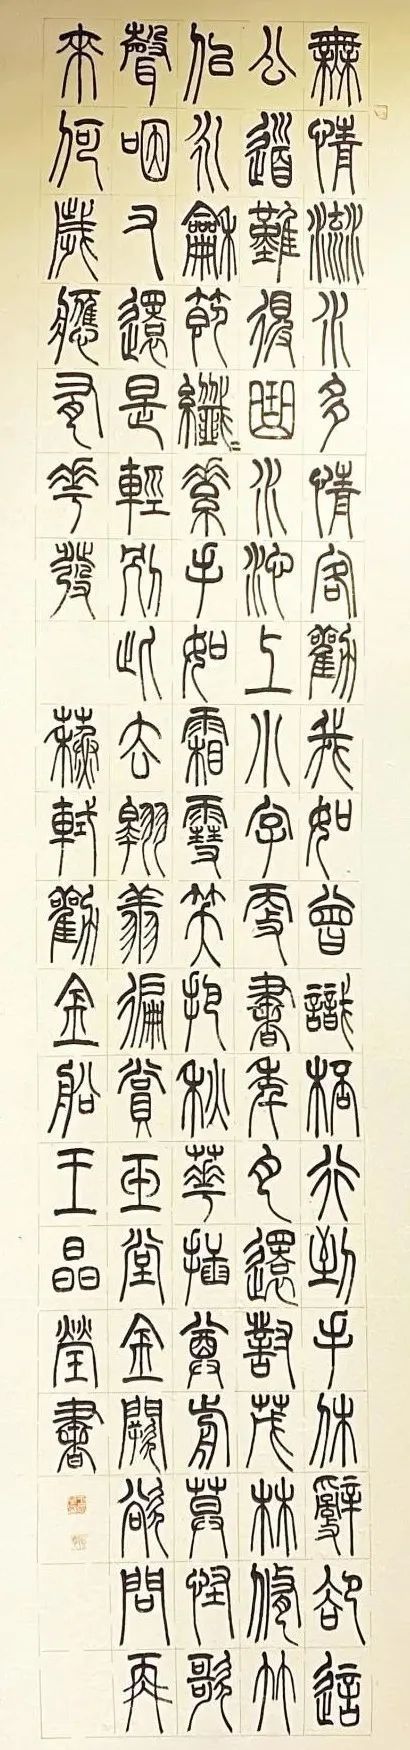 無情流水多情客勸我如曾識桮行到手休辭卻這
公道難得曲水池上小字更書年月還對茂林修竹
似永龢節纖=素手如霜雪笑把秋華插尊前莫怪歌
聲咽又還是輕別此去翱翔徧賞玉堂金闕欲問再
來何歲應有華發 蘇軾勸金船王晶瑩書